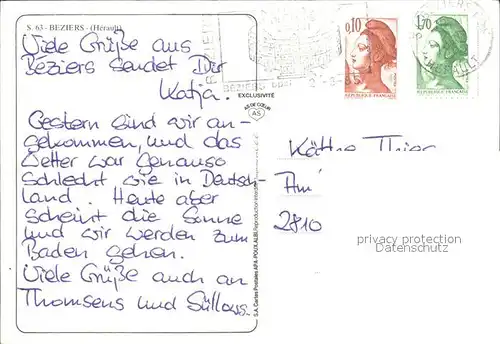 S. 63 - BEZIERS - (Hérault)
Viele Grüße aus
Beziers sendet Dir
Katja.
Gestern sind wir an-
gekommen, und das
Wetter war genauso
schlecht wie in Deutsch-
land. Heute aber
scheint die Sonne
und wir werden zum
Baden gehen.
Viele Grüße auch an
Thomsens und Süllows.
EXCLUSIVITÉ
AS DE CŒUR
AS
S.A. Cartes Postales APA-POUX, ALBI
BEZIERS
0,10
REPUBLIQUE FRANCAISE
1,70
REPUBLIQUE FRANCAISE
Käthe
Am
2810
privacy protection
Datenschutz